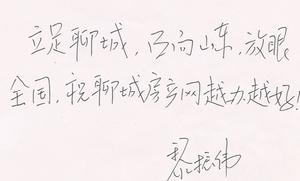 立足聊城，面向山东，放眼
全国，祝聊城房产网越办越好！
黎振伟